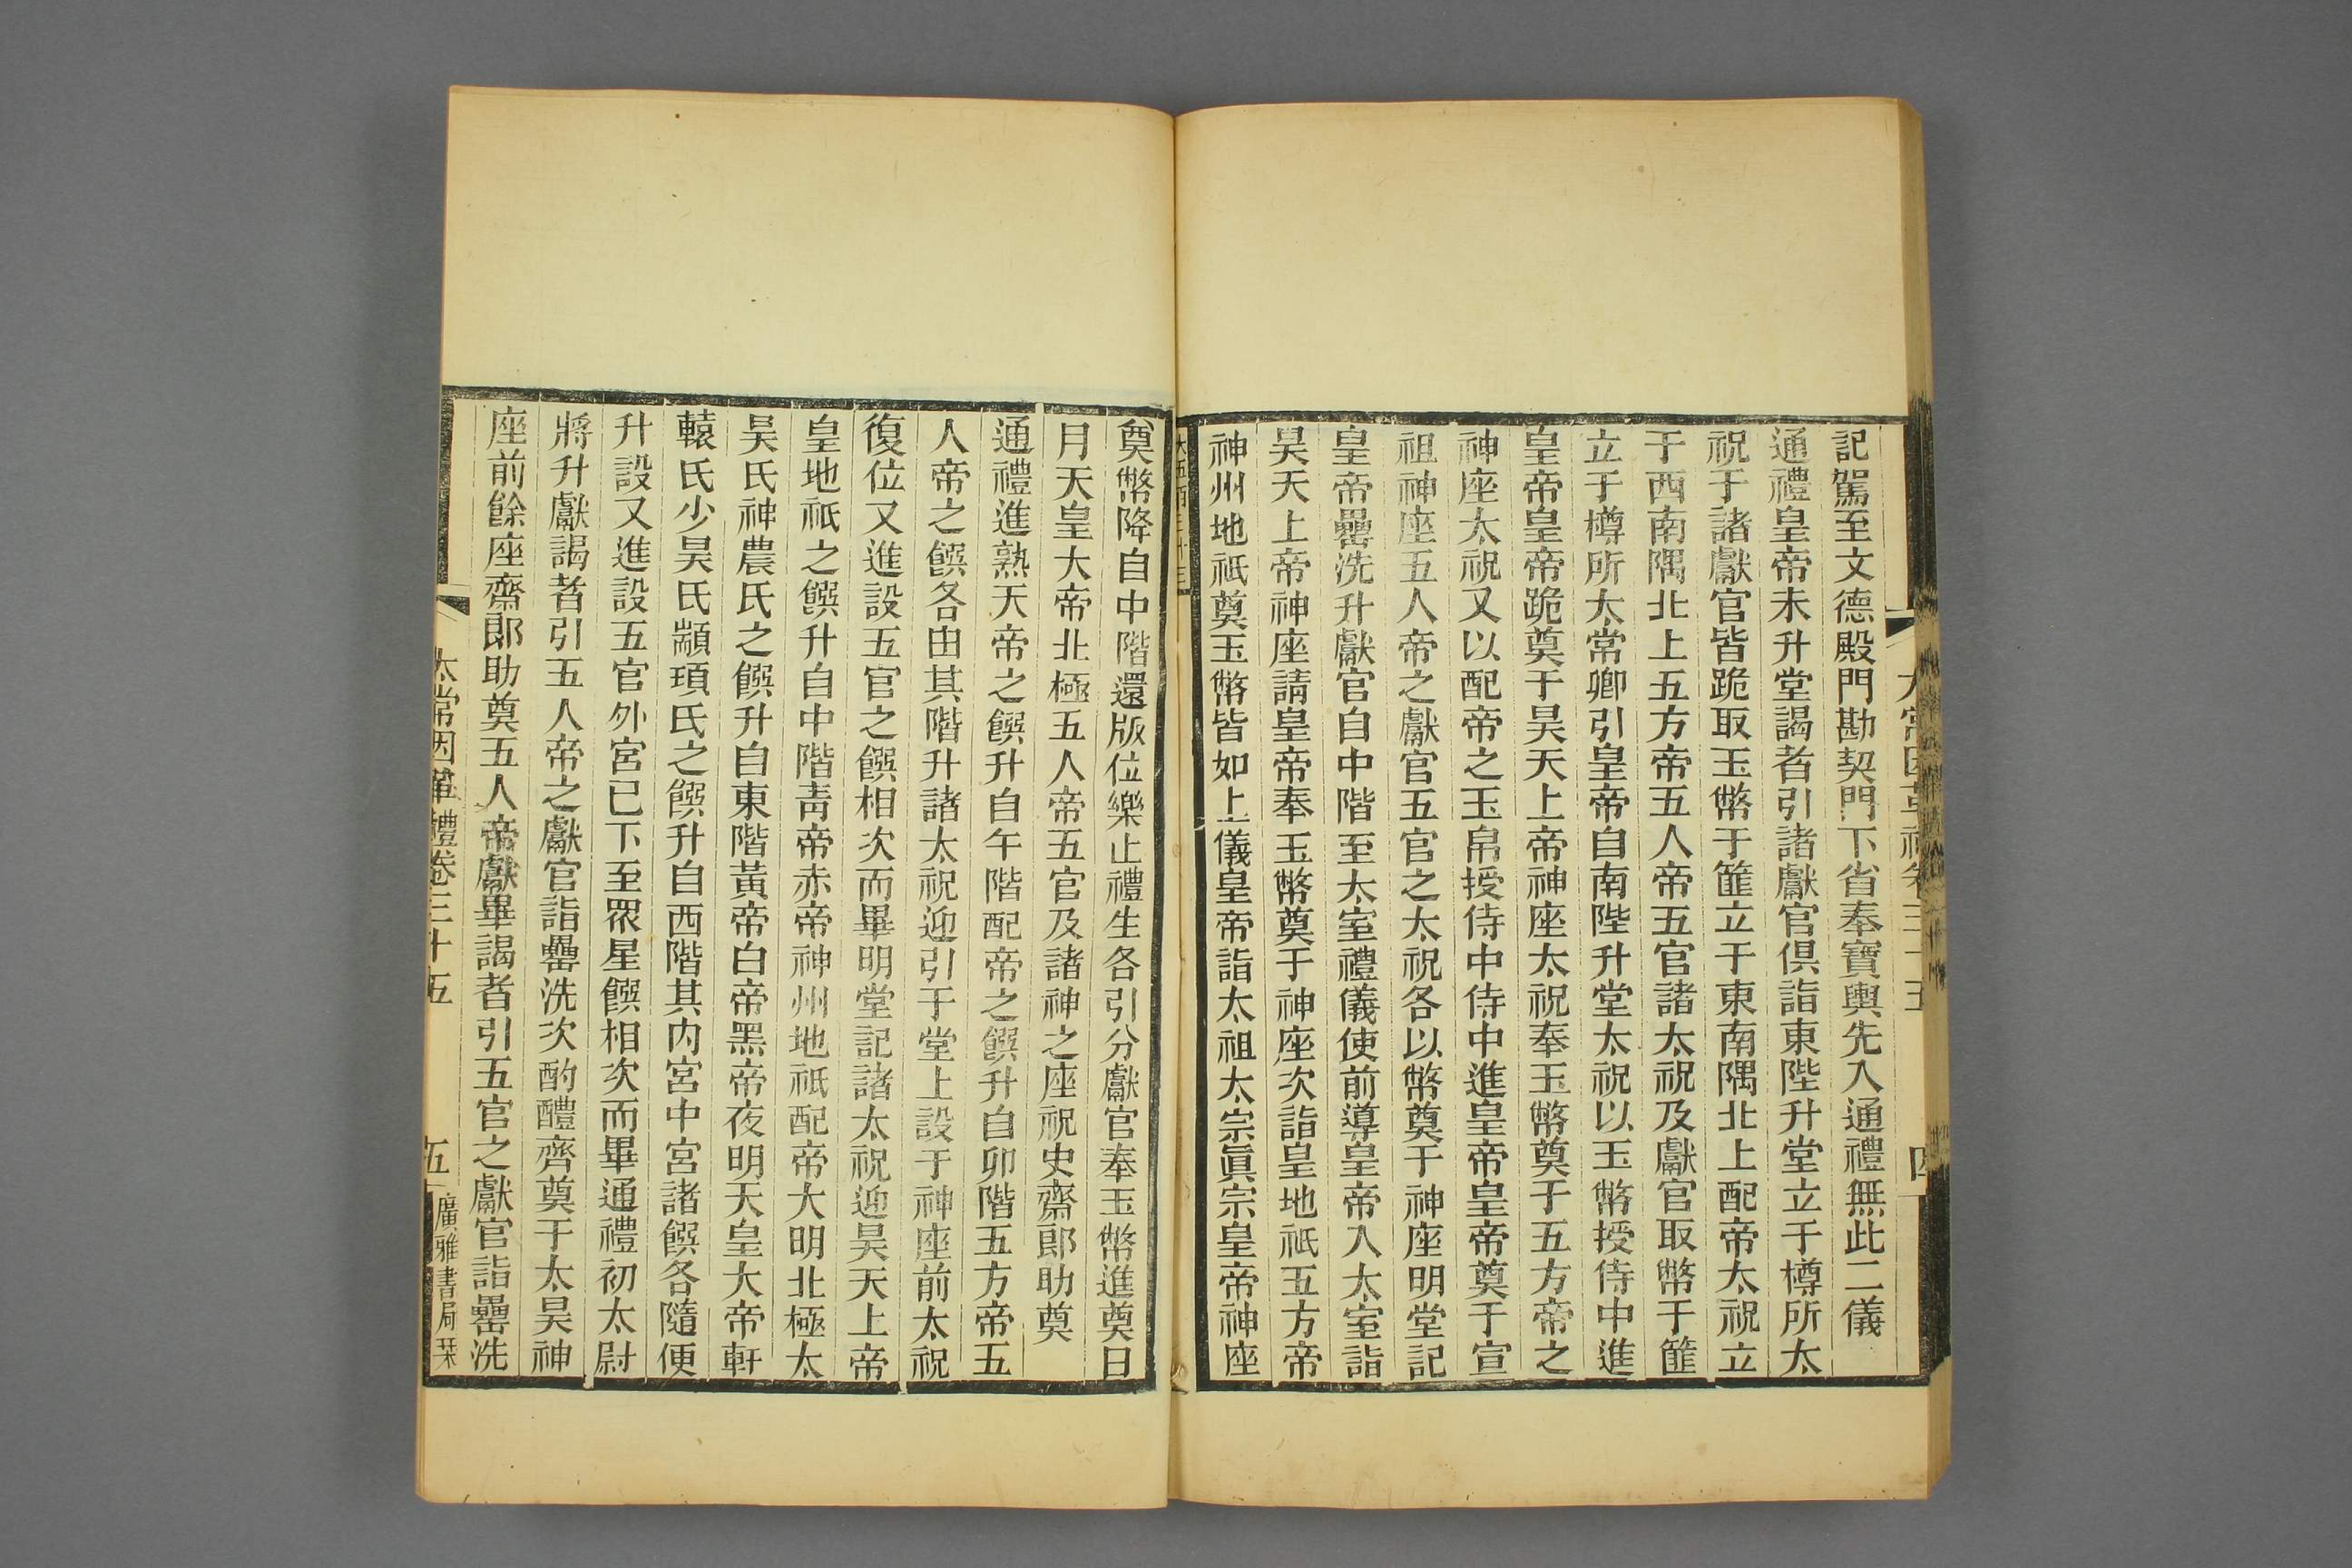 太常因革禮卷三十五
四
記駕至文德殿門勘契門下省奉寶輿先入通禮無此二儀
通禮皇帝未升堂謁者引諸獻官俱詣東陛升堂立于樽所太
祝于諸獻官皆跪取玉幣于篚立于東南隅北上配帝太祝立
于西南隅北上五方帝五人帝五官諸太祝及獻官取幣于篚
立于樽所太常卿引皇帝自南陛升堂太祝以玉幣授侍中進
皇帝皇帝跪奠于昊天上帝神座太祝奉玉幣奠于五方帝之
神座太祝又以配帝之玉帛授侍中侍中進皇帝皇帝奠于宣
祖神座五人帝之獻官五官之太祝各以幣奠于神座明堂記
皇帝罍洗升獻官自中階至太室禮儀使前導皇帝入太室詣
昊天上帝神座請皇帝奉玉幣奠于神座次詣皇地祇五方帝
神州地祇奠玉幣皆如上儀皇帝詣太祖太宗眞宗皇帝神座
奠幣降自中階還版位樂止禮生各引分獻官奉玉幣進奠日
月天皇大帝北極五人帝五官及諸神之座祝史齋郎助奠
通禮進熟天帝之饌升自午階配帝之饌升自卯階五方帝五
人帝之饌各由其階升諸太祝迎引于堂上設于神座前太祝
復位又進設五官之饌相次而畢明堂記諸太祝迎昊天上帝
皇地祇之饌升自中階靑帝赤帝神州地祇配帝大明北極太
昊氏神農氏之饌升自東階黃帝白帝黑帝夜明天皇大帝軒
轅氏少昊氏顓頊氏之饌升自西階其內宮中宮諸饌各隨便
升設又進設五官外宮已下至眾星饌相次而畢通禮初太尉
將升獻謁者引五人帝之獻官詣罍洗次酌醴齊奠于太昊神
座前餘座齋郎助奠五人帝獻畢謁者引五官之獻官詣罍洗
太常因革禮卷三十五
五
廣雅書局栞